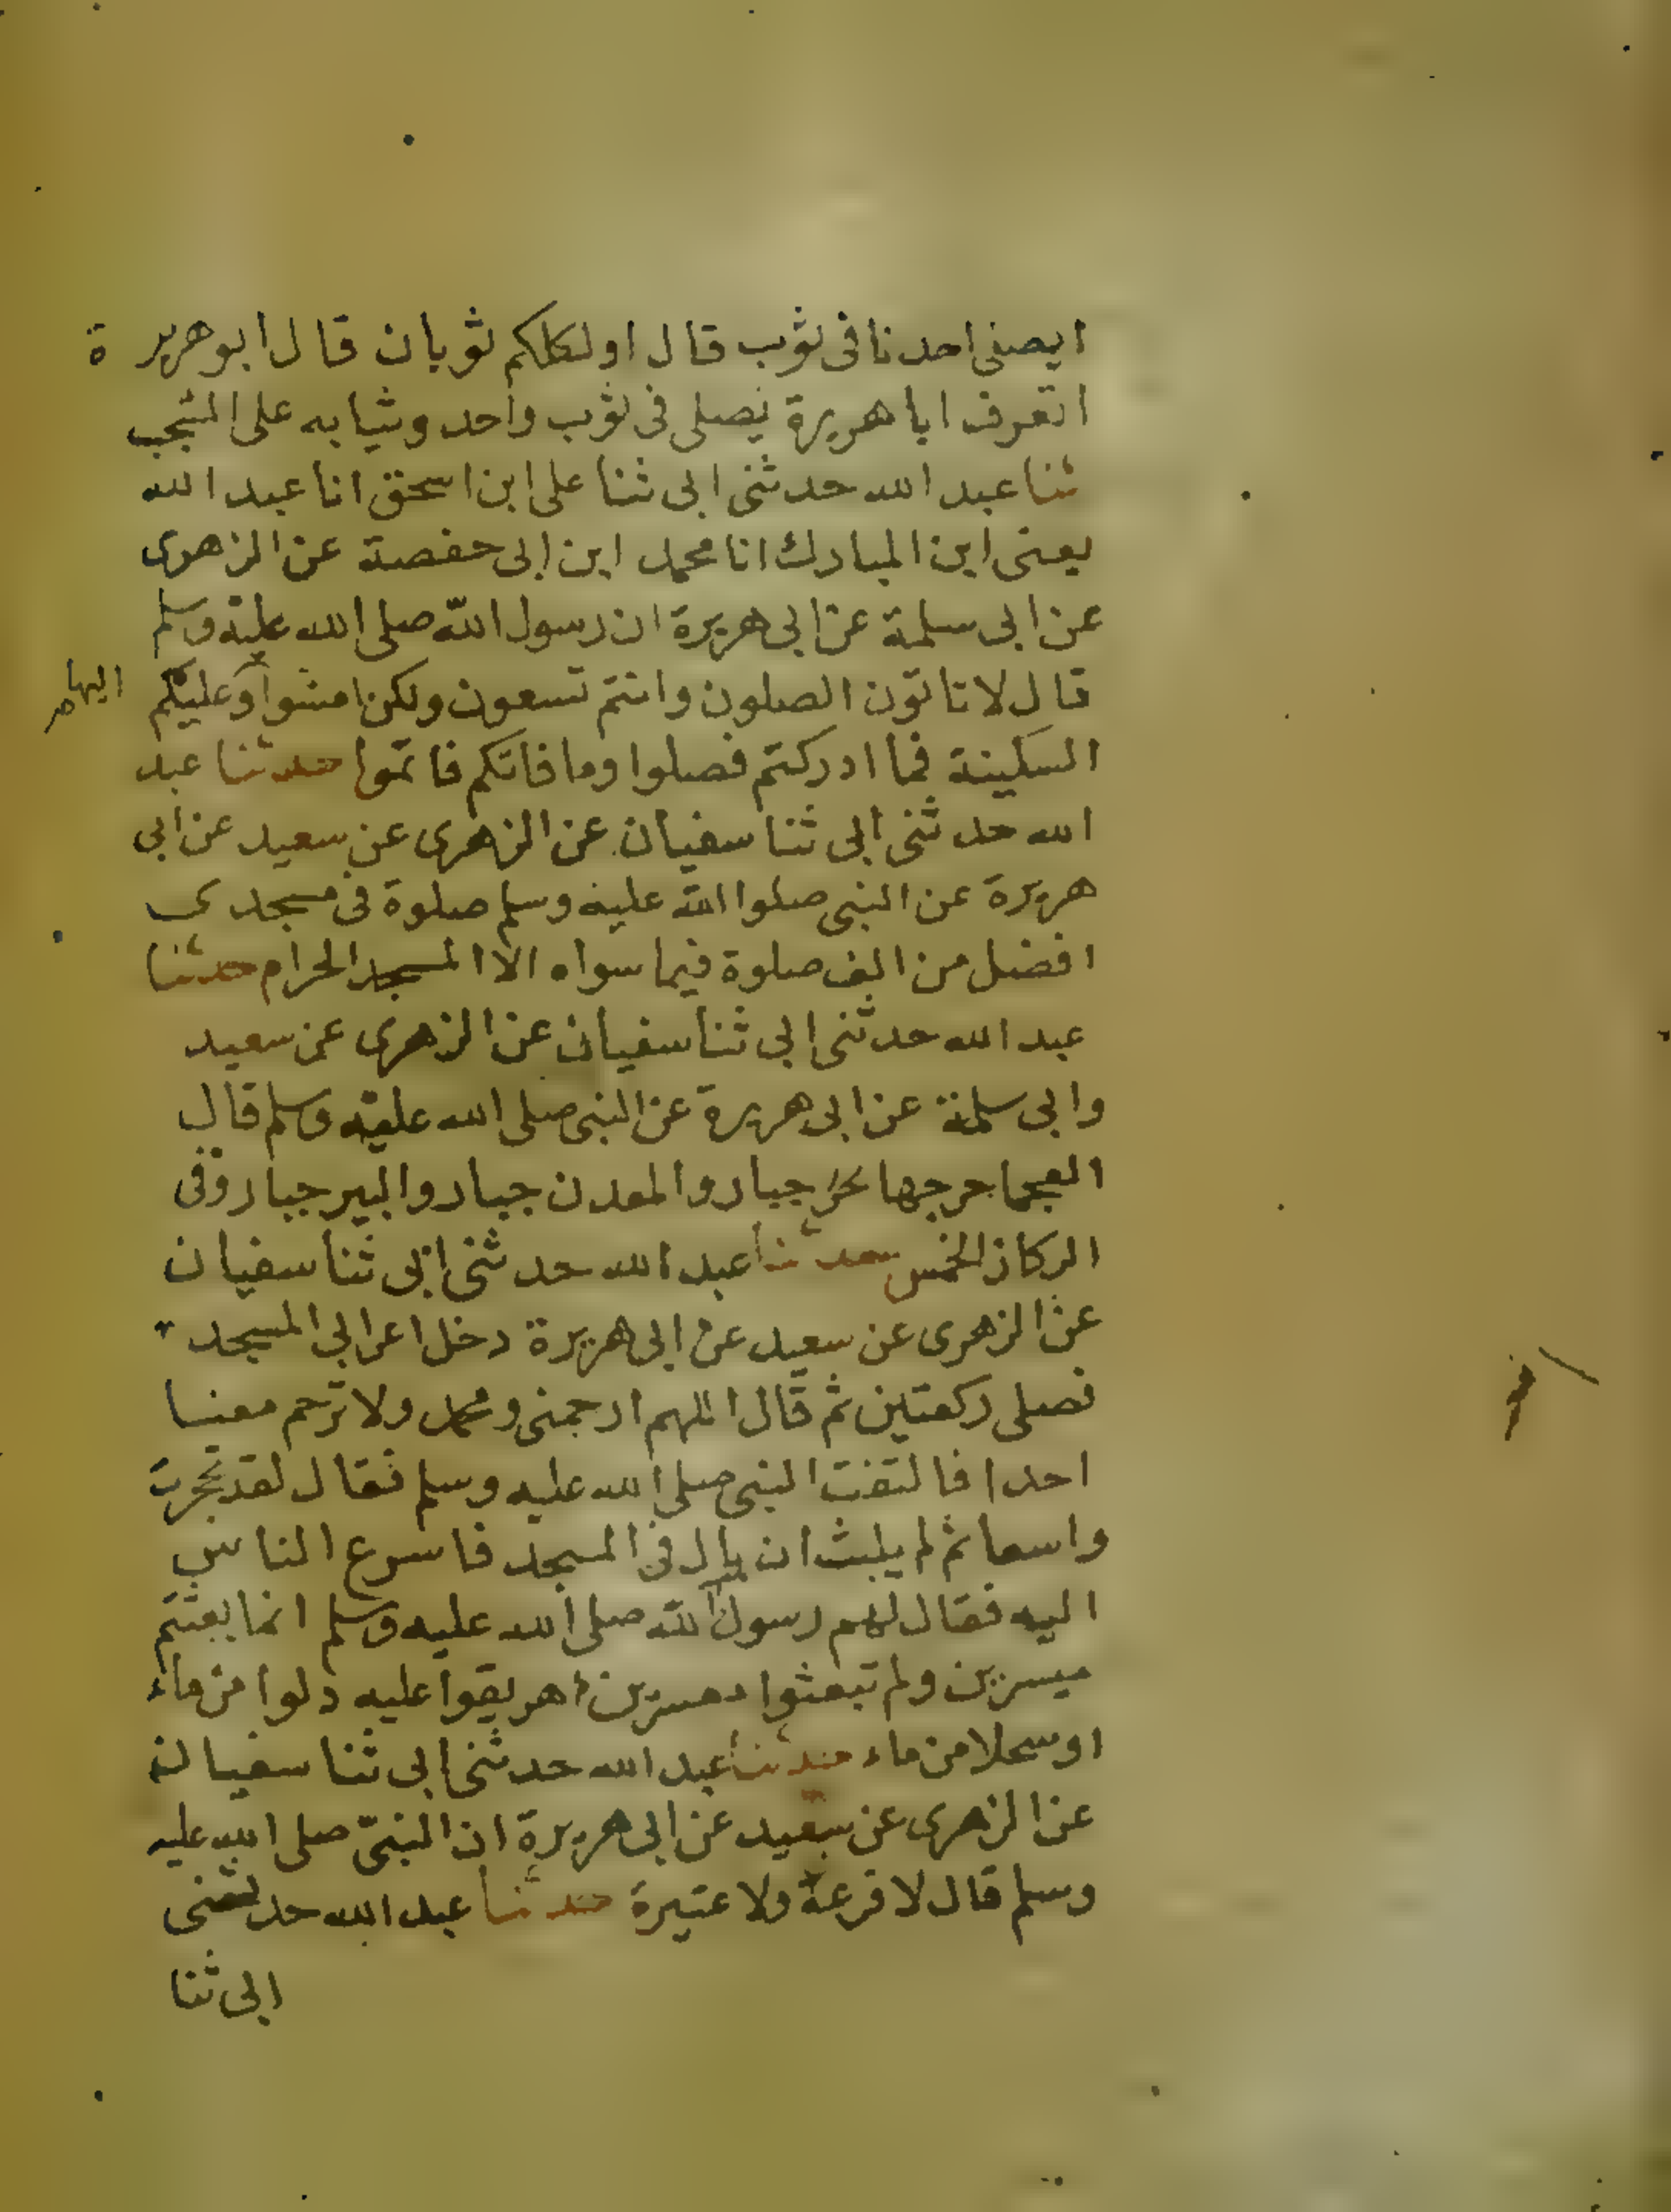 ايصلى احدنا فى ثوب قال اولكلكم ثوبان قال ابو هريرة
اتعرف ابا هريرة يصلى فى ثوب واحد وثيابه على المشجب
ثنا عبد الله حدثنى ابى ثنا على ابن اسحق انا عبد الله
يعنى ابن المبارك انا محمد ابن ابى حفصة عن الزهرى
عن ابى سلمة عن ابى هريرة ان رسول الله صلى الله عليه وسلم
قال لا تاتون الصلون وانتم تسعون ولكن امشوا وعليكم
اليها
السكينة فما ادركتم فصلوا وما فاتكم فاتموا حدثنا عبد
الله حدثنى ابى ثنا سفيان عن الزهرى عن سعيد عن ابى
هريرة عن النبى صلوا الله عليه وسلم صلوة فى مسجدى
افضل من الف صلوة فيما سواه الا المسجد الحرام حدثنا
عبد الله حدثنى ابى ثنا سفيان عن الزهرى عن سعيد
وابى سلمة عن ابى هريرة عن النبى صلى الله عليه وسلم قال
العجما جرجها جبار والمعدن جبار والبير جبار وفى
الركاز الخمس حدثنا عبد الله حدثنى ابى ثنا سفيان
عن الزهرى عن سعيد عن ابى هريرة دخل اعرابى المسجد
فصلى ركعتين ثم قال اللهم ارحمنى ومحمد ولا ترحم معنا
احدا فالتفت النبى صلى الله عليه وسلم فقال لقد تحجرت
واسعا ثم لم يلبث ان بال فى المسجد فاسرع الناس
اليه فقال لهم رسول الله صلى الله عليه وسلم انما بعثتم
ميسرين ولم تبعثوا معسرين اهريقوا عليه دلوا من ماء
او سجلا من ماء حدثنا عبد الله حدثنى ابى ثنا سفيان
عن الزهرى عن سعيد عن ابى هريرة ان النبى صلى الله عليه
وسلم قال لا فرعة ولا عتيرة حدثنا عبد الله حدثنى
ابى ثنا